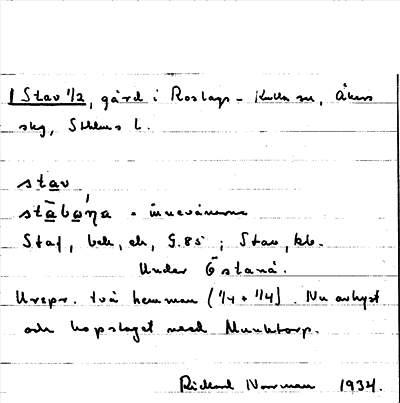 1 Stav 1/2, gård i Roslags-Kulla sn, Åkers
skg, Sthlms l.
stav
stäbo̱ŋa - invånarna
Staf, beb, ek, G.85 ; Stav, kb.
Under Östanå.
Urspr. två hemman (1/4 + 1/4). Nu avhyst
och hopslaget med Munktorp.
Rickard Norrman 1934.